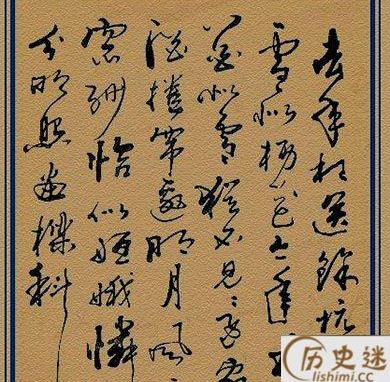 去年相送餘杭
雪似楊花今年
花似雪猶不見還家
酒捲簾邀明月風
窗紗恰似姮娥憐
分明照畫樑斜
历史迷
lishimi.cc